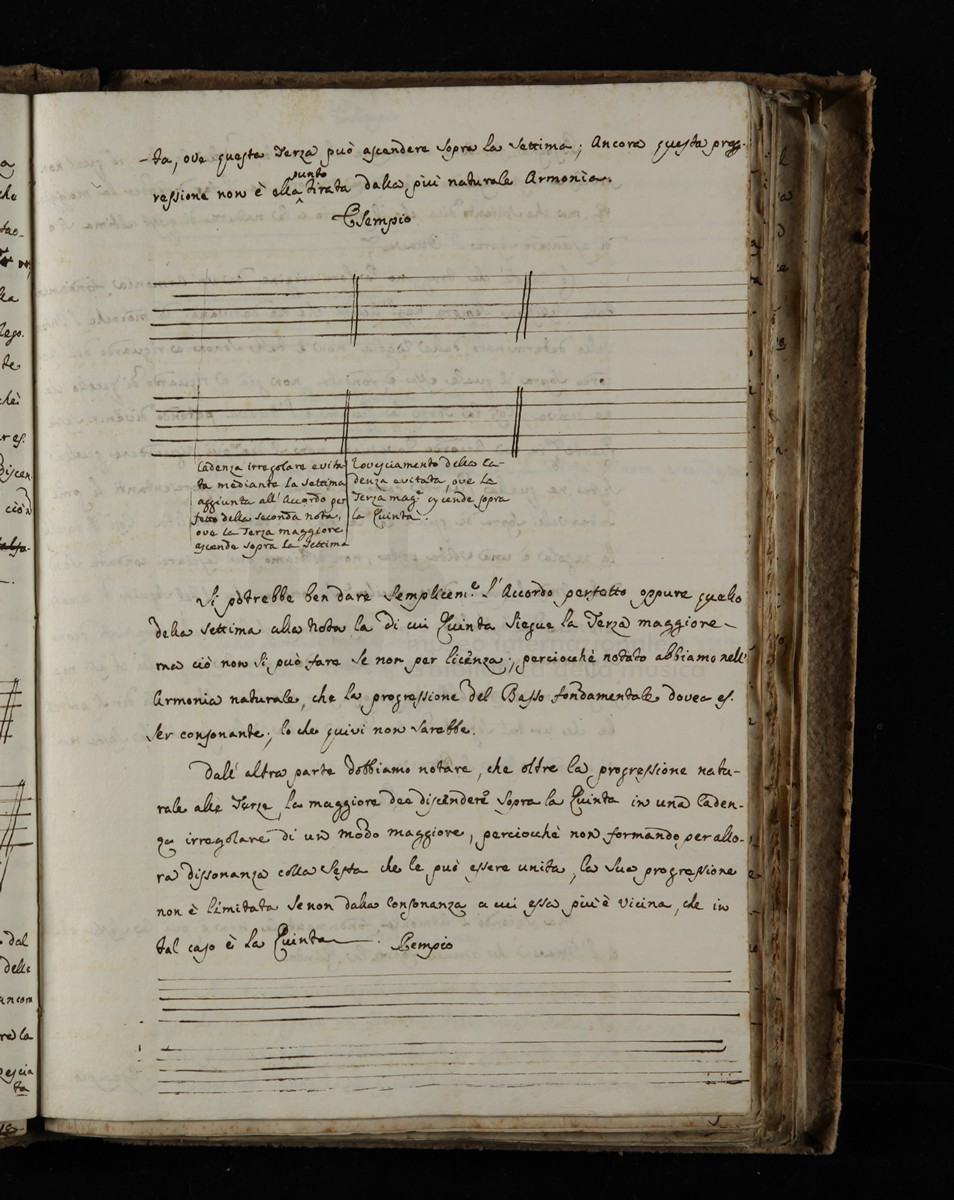 -ta, ove questa Terza può ascendere sopra la Settima; Ancora questa prog-
punto
ressione non è ella tirata dalla più naturale Armonia.
Esempio
Cadenza irregolare evita
ta mediante la Settima
aggiunta all'Accordo per
fetto della seconda nota,
ove la Terza maggiore
ascende sopra la Settima
Rovesciamento della Ca-
denza evitata, ove la
Terza mag.e ascende sopra
la Quinta.
Si potrebbe ben dare semplicem.e l'Accordo perfetto oppure quello
della Settima alla Nota la di cui Quinta siegue la Terza maggiore
ma ciò non si può fare se non per licenza; perciocchè notato abbiamo nell'
Armonia naturale, che la progressione del Basso fondamentale dovea es-
ser consonante; lo che quivi non sarebbe.
Dall'altra parte dobbiamo notare, che oltre la progressione natu-
rale alle Terze, la maggiore dee discendere sopra la Quinta in una Caden-
za irregolare di un modo maggiore, perciocchè non formando per allo-
ra dissonanza colla Sesta che le può essere unita, la sua progressione
non è limitata se non dalla Consonanza a cui essa più è vicina, che in
tal caso è la Quinta. Esempio